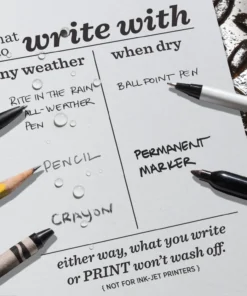 hat
o write with
ny weather
when dry
RITE IN THE RAIN
ALL-WEATHER
PEN
BALLPOINT PEN
PENCIL
PERMANENT
MARKER
CRAYON
either way, what you write
or PRINT won't wash off.
( NOT FOR INK-JET PRINTERS )